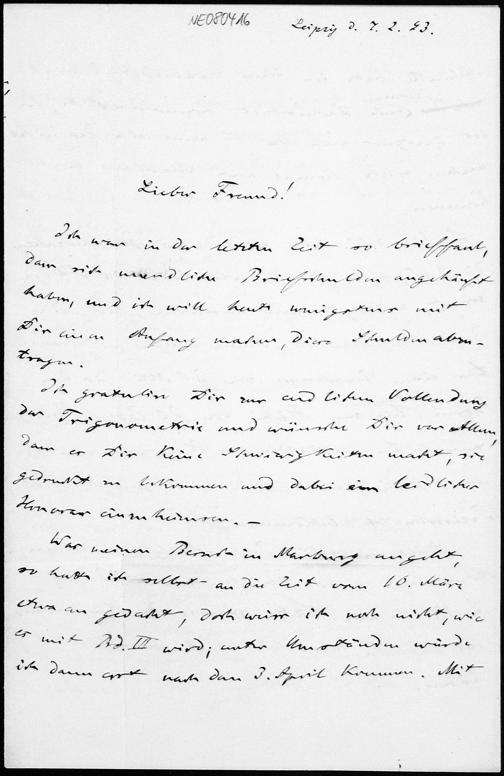 NE080416
Leipzig d. 7. 2. 23.
Lieber Freund!
Ich war in der letzten Zeit so brieffaul,
dass sich unendliche Briefschulden angehäuft
haben, und ich will heute wenigstens mit
Dir einen Anfang machen, diese Schulden abzu-
tragen.
Ich gratuliere Dir zur endlichen Vollendung
der Trigonometrie und wünsche Dir vor Allem,
dass es Dir keine Schwierigkeiten macht, sie
gedruckt zu bekommen und dabei ein leidliches
Honorar einzuheimsen. —
Was meinen Besuch in Marburg angeht,
so hatte ich selbst an die Zeit vom 10. März
etwa an gedacht, doch weiss ich noch nicht, wie
es mit Bd. III wird; unter Umständen würde
ich dann erst nach dem 3. April kommen. Mit